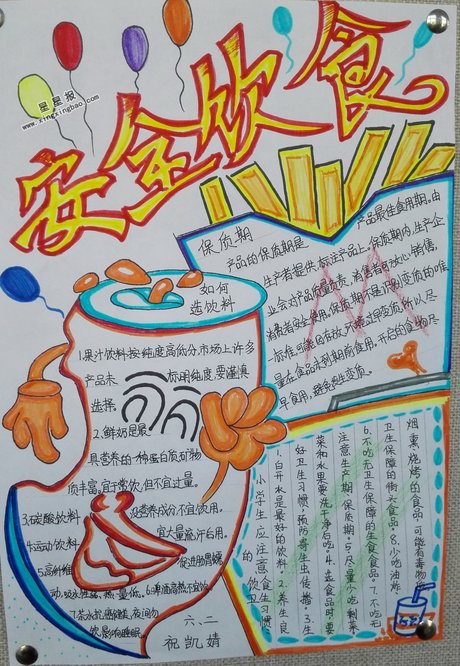 星星报
www.xingxingbao.com
安全饮食
保质期
产品的保质期是
产品最佳食用期。由
生产者提供,标注产品上。保质期内,生产企
业会对产品质量负责,消费者可放心销售,
消费者安全使用。保质期不是识别变质的唯一
标准,可能因存放
量在食品未到期前食用。开启的食物尽
早食用,避免发生变质。
如何
选饮料
1.果汁饮料按纯度高低分,市场上许多
产品未
标明纯度,要谨慎
选择。
2.鲜奶是最
具营养的一种蛋白质矿物
质丰富,宜于常饮,但不宜过量。
3.碳酸饮料
没营养成分不宜饮用。
4.运动饮料
宜大量流汗后用。
5.高纤维
促进胃蠕
动,吸水性强,热量低。
7.茶
夜间勿
饮,影响睡眠
六、二
祝凯婧
小学生应注意
饮食卫生习惯
1.白开水是最好的饮料。2.养成良
好卫生习惯,预防寄生虫传播。3.生
菜和水果要洗干净后吃。4.选食品时,要
注意生产期、保质期。5.尽量少吃剩菜
6.不吃无卫生保障的生食食品。7.不吃无
卫生保障的街头食品。8.少吃油炸
烟熏烧烤的食品,可能有毒物